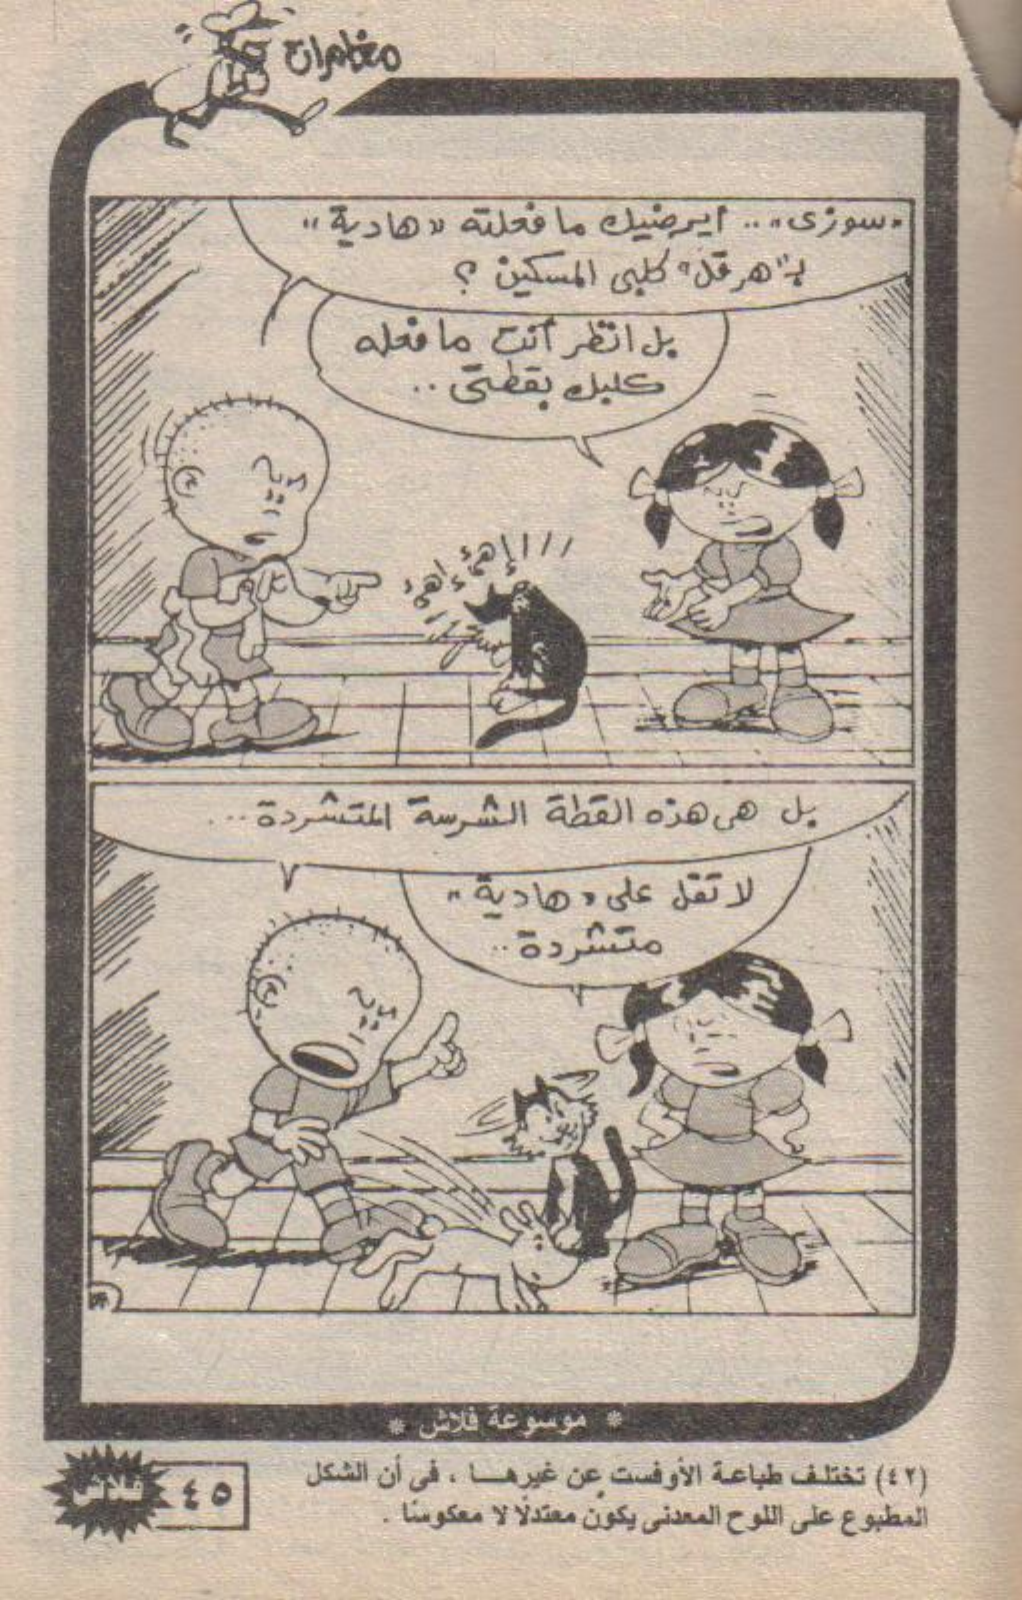 مغامرات
«سوزى» .. أيرضيك ما فعلته «هادية»
بـ"هرقل" كلبى المسكين ؟
بل انظر أنت ما فعله
كلبك بقطتى ..
إهئ إهئ
بل هى هذه القطة الشرسة المتشردة ...
لا تقل على «هادية»
متشردة ..
* موسوعة فلاش *
(٤٢) تختلف طباعة الأوفست عن غيرهـا ، فى أن الشكل
المطبوع على اللوح المعدنى يكون معتدلًا لا معكوسًا .
٤٥
فلاش